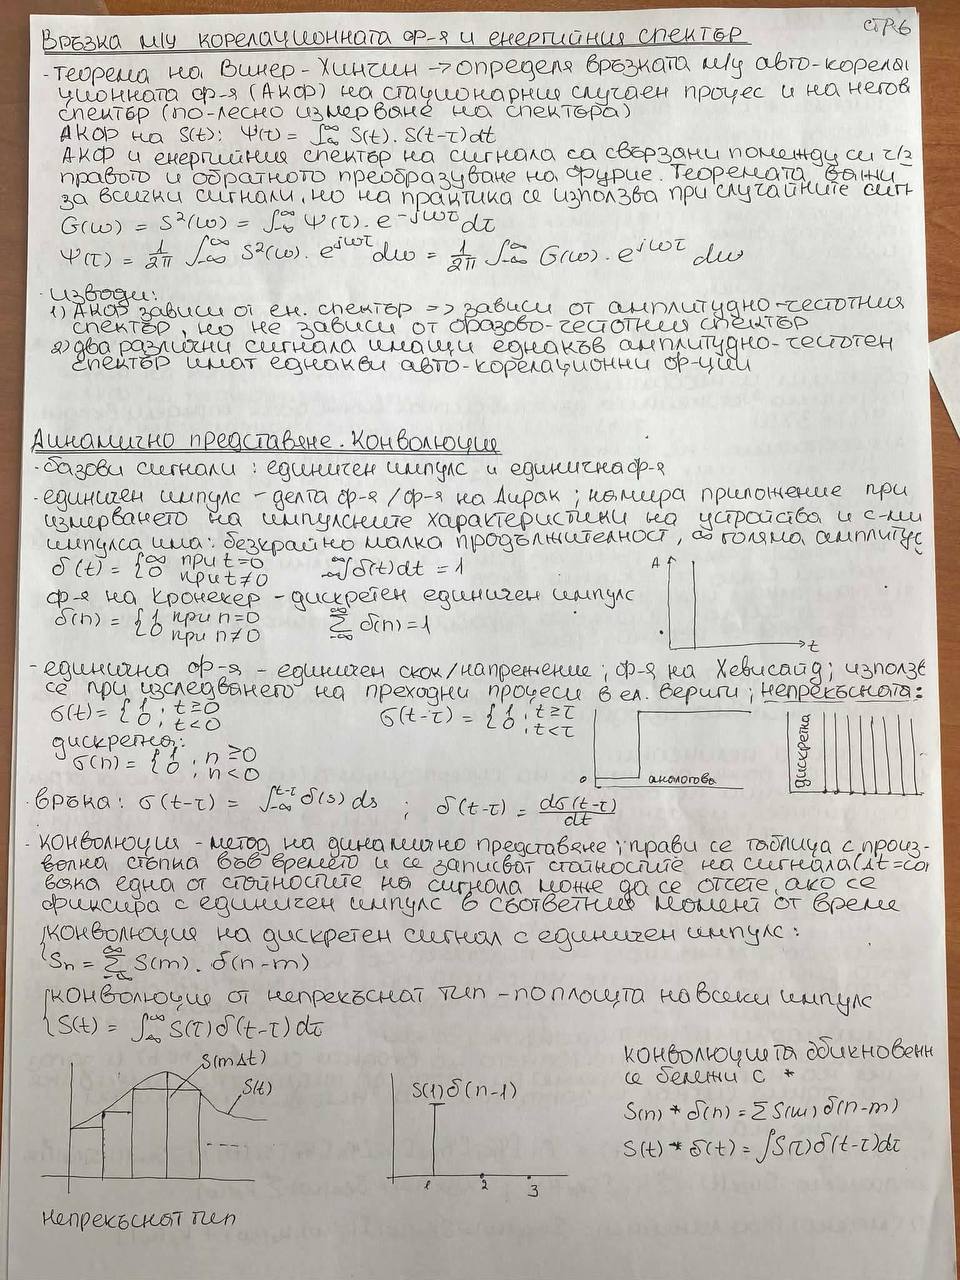 стр6
Връзка м/у корелационната ф-я и енергийния спектър
- теорема на Винер-Хинчин → определя връзката м/у авто-корела
ционната ф-я (АКФ) на стационарния случаен процес и на негов
спектър (по-лесно измерване на спектъра)
АКФ на S(t): Ψ(τ) = ∫_{-∞}^{∞} S(t). S(t-τ)dt
АКФ и енергийния спектър на сигнала са свързани помежду си ч/з
правото и обратното преобразуване на Фурие. Теоремата важи
за всички сигнали, но на практика се използва при случайните сигн
G(ω) = S²(ω) = ∫_{-∞}^{∞} Ψ(τ). e^{-jωτ} dτ
Ψ(τ) = 1/2π ∫_{-∞}^{∞} S²(ω). e^{jωτ} dω = 1/2π ∫_{-∞}^{∞} G(ω). e^{jωτ} dω
- изводи:
1) АКФ зависи от ен. спектър => зависи от амплитудно-честотния
спектър, но не зависи от фазово-честотния спектър
2) два различни сигнала имащи еднакъв амплитудно-честотен
спектър имат еднакви авто-корелационни ф-ции
Динамично представяне. Конволюция
- базови сигнали: единичен импулс и единична ф-я
- единичен импулс - делта ф-я / ф-я на Дирак; намира приложение при
измерването на импулсните характеристики на устройства и с-ми
импулса има: безкрайно малка продължителност, ∞ голяма амплитуд
δ(t) = {∞ при t=0
0 при t≠0
∫_{-∞}^{∞} δ(t)dt = 1
A
t
ф-я на Кронекер - дискретен единичен импулс
δ(n) = {1 при n=0
0 при n≠0
∑_{-∞}^{∞} δ(n)=1
- единична ф-я - единичен скок/напрежение; ф-я на Хевисайд; използв
се при изследването на преходни процеси в ел. вериги; непрекъсната:
σ(t) = {1, t≥0
0, t<0
σ(t-τ) = {1, t≥τ
0, t<τ
0
аналогова
дискретна
дискретна:
σ(n) = {1, n≥0
0, n<0
връка: σ(t-τ) = ∫_{-∞}^{t-τ} δ(s) ds ; δ(t-τ) = dσ(t-τ)/dt
- конволюция - метод на динамично представяне; прави се таблица с произ-
волна стъпка във времето и се записват стойностите на сигнала (Δt=con
всяка една от стойностите на сигнала може да се отсете, ако се
фиксира с единичен импулс в съответния момент от време
конволюция на дискретен сигнал с единичен импулс:
Sn = ∑_{-∞}^{∞} S(m). δ(n-m)
конволюция от непрекъснат тип - по площта на всеки импулс
S(t) = ∫_{-∞}^{∞} S(τ) δ(t-τ) dτ
S(mΔt)
S(t)
непрекъснат тип
S(1)δ(n-1)
1 2 3
конволюцията обикновенн
се бележи с *
S(n) * δ(n) = ∑ S(m) δ(n-m)
S(t) * δ(t) = ∫ S(τ) δ(t-τ)dτ